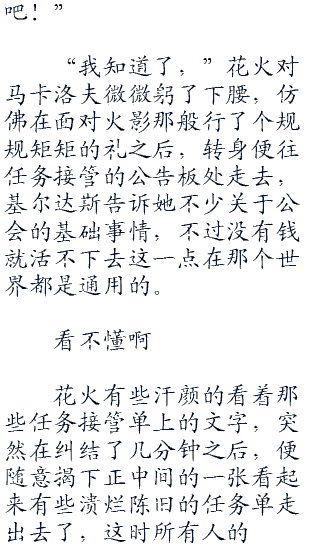 吧！”
“我知道了，”花火对
马卡洛夫微微躬了下腰，仿
佛在面对火影那般行了个规
规矩矩的礼之后，转身便往
任务接管的公告板处走去，
基尔达斯告诉她不少关于公
会的基础事情，不过没有钱
就活不下去这一点在那个世
界都是通用的。
看不懂啊
花火有些汗颜的看着那
些任务接管单上的文字，突
然在纠结了几分钟之后，便
随意揭下正中间的一张看起
来有些溃烂陈旧的任务单走
出去了，这时所有人的